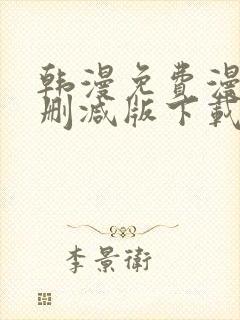 韩漫免费漫
删减版下载
李景衛